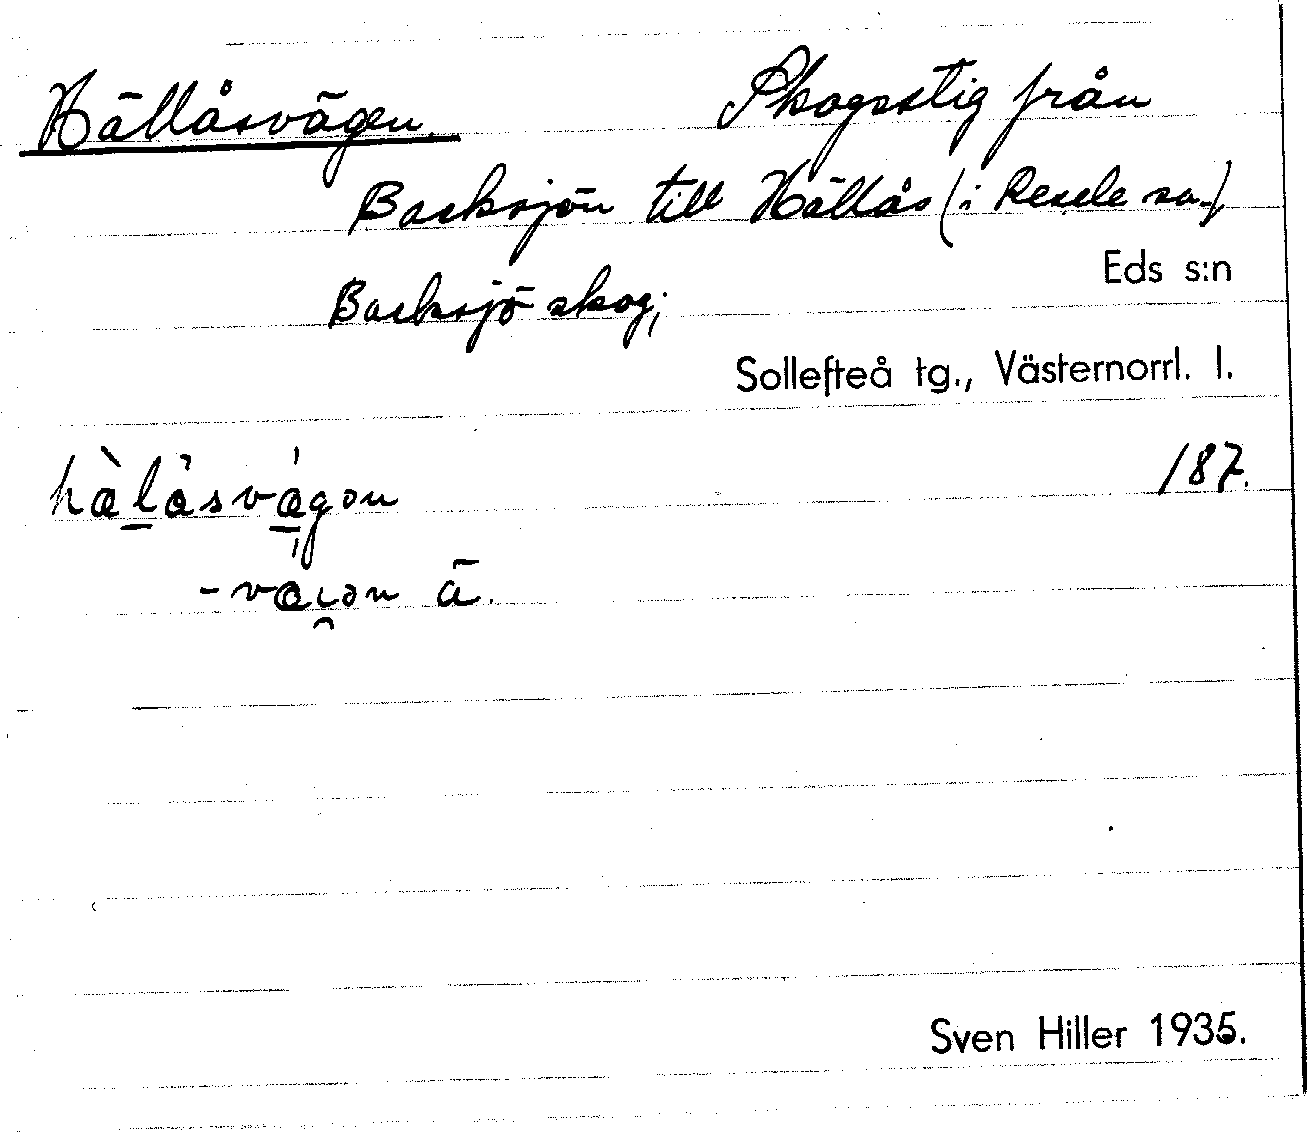 Hällåsvägen. Skogsstig från
Backsjön till Hällås (i Resele sn.)
Eds s:n
Backsjö skog;
Sollefteå tg., Västernorrl. l.
187.
Sven Hiller 1935.